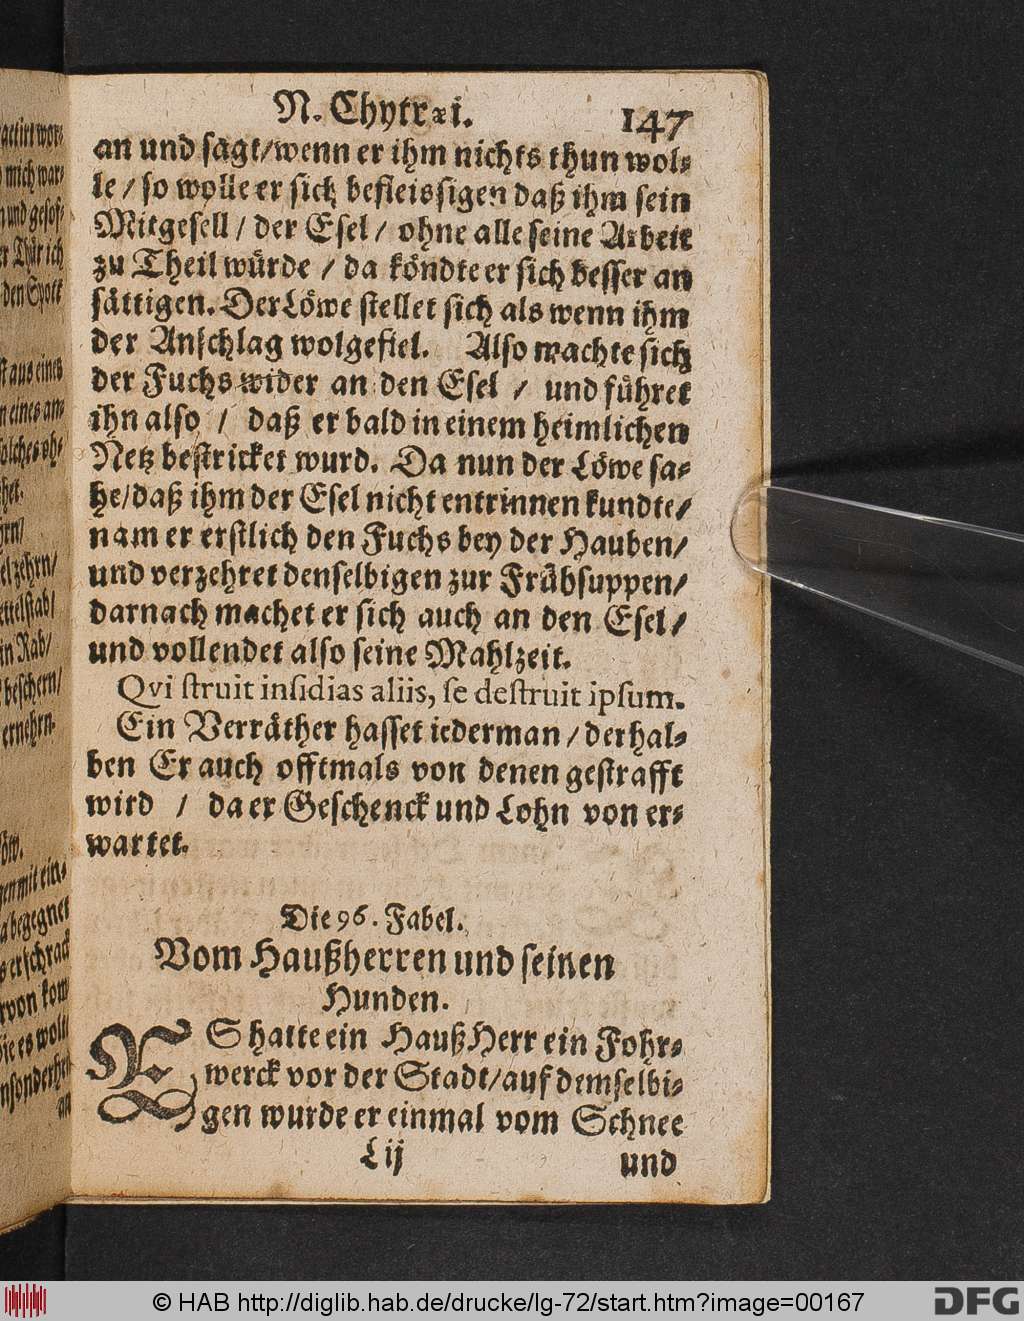 N. Chytræi. 147
an und sagt/wenn er ihm nichts thun wol-
le / so wolle er sich befleissigen daß ihm sein
Mitgesell / der Esel / ohne alle seine Arbeit
zu Theil würde / da köndte er sich besser an
sättigen. Der Löwe stellet sich als wenn ihm
der Anschlag wolgefiel. Also machte sich
der Fuchs wider an den Esel / und führet
ihn also / daß er bald in einem heimlichen
Netz bestricket wurd. Da nun der Löwe sa-
he/daß ihm der Esel nicht entrinnen kundte/
nam er erstlich den Fuchs bey der Hauben/
und verzehret denselbigen zur Frühsuppen/
darnach machet er sich auch an den Esel/
und vollendet also seine Mahlzeit.
Qvi struit insidias aliis, se destruit ipsum.
Ein Verräther hasset iederman / derhal-
ben Er auch offtmals von denen gestrafft
wird / da er Geschenck und Lohn von er-
wartet.
Die 96. Fabel.
Vom Haußherren und seinen
Hunden.
ES hatte ein Hauß Herr ein Fohr-
werck vor der Stadt/auf demselbi-
gen wurde er einmal vom Schnee
L ij und
© HAB http://diglib.hab.de/drucke/lg-72/start.htm?image=00167
DFG